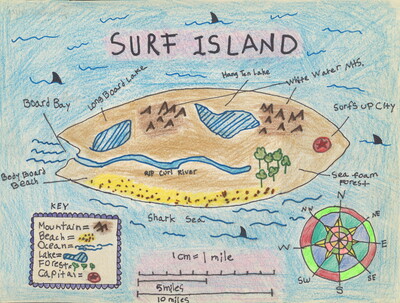 SURF ISLAND
Hang Ten Lake
White Water Mts.
Long Board Lake
Board Bay
Surf's Up City
Rip Curl River
Body Board
Beach
Sea foam
Forest
Shark Sea
KEY
Mountain=
Beach=
Ocean=
Lake=
Forest=
Capital=
1cm = 1 mile
5miles
10 miles
N
NE
E
SE
S
SW
W
NW